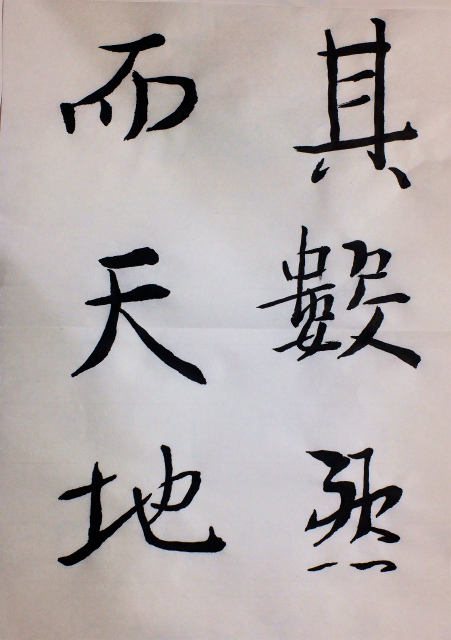 其數然
而天地